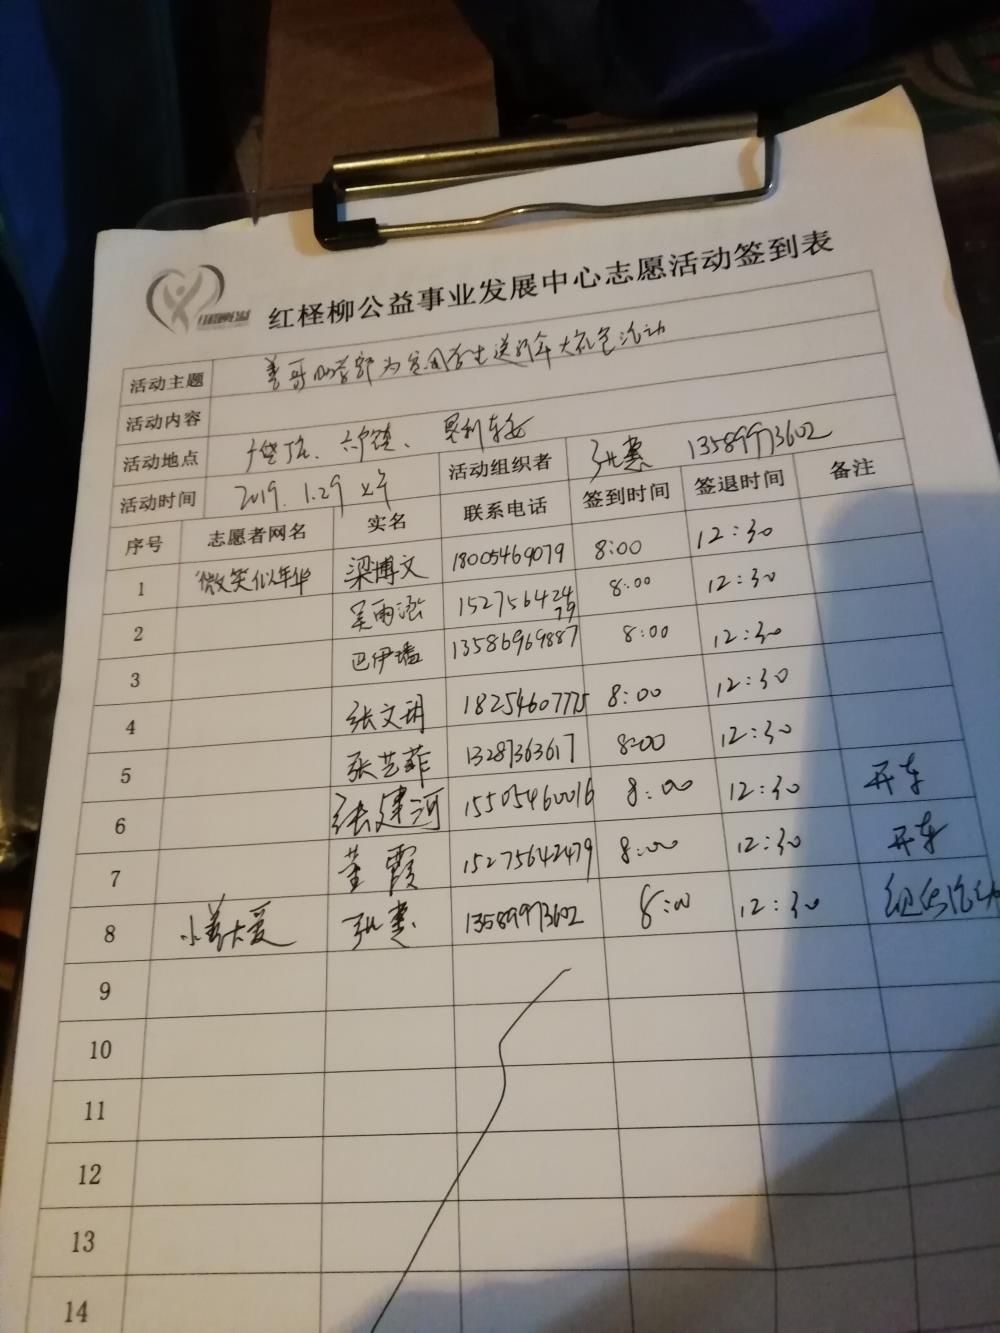 红柽柳公益事业发展中心志愿活动签到表
活动主题 善哥助学部为贫困学生送新年大礼包活动
活动内容
活动地点
活动组织者 张慧 13589973602
活动时间 2019.1.29 上午
序号 志愿者网名 实名 联系电话 签到时间 签退时间 备注
1 微笑似年华 梁博文 18005469079 8:00 12:30
2 吴雨泓 15275642479 8:00 12:30
3 巴伊璠 13586969887 8:00 12:30
4 张文玥 18254607775 8:00 12:30
5 张艺菲 13287363617 8:00 12:30
6 张建河 15505460016 8:00 12:30 开车
7 董霞 15275642479 8:00 12:30 开车
8 小善大爱 张慧 13589973602 8:00 12:30 组织活动
9
10
11
12
13
14